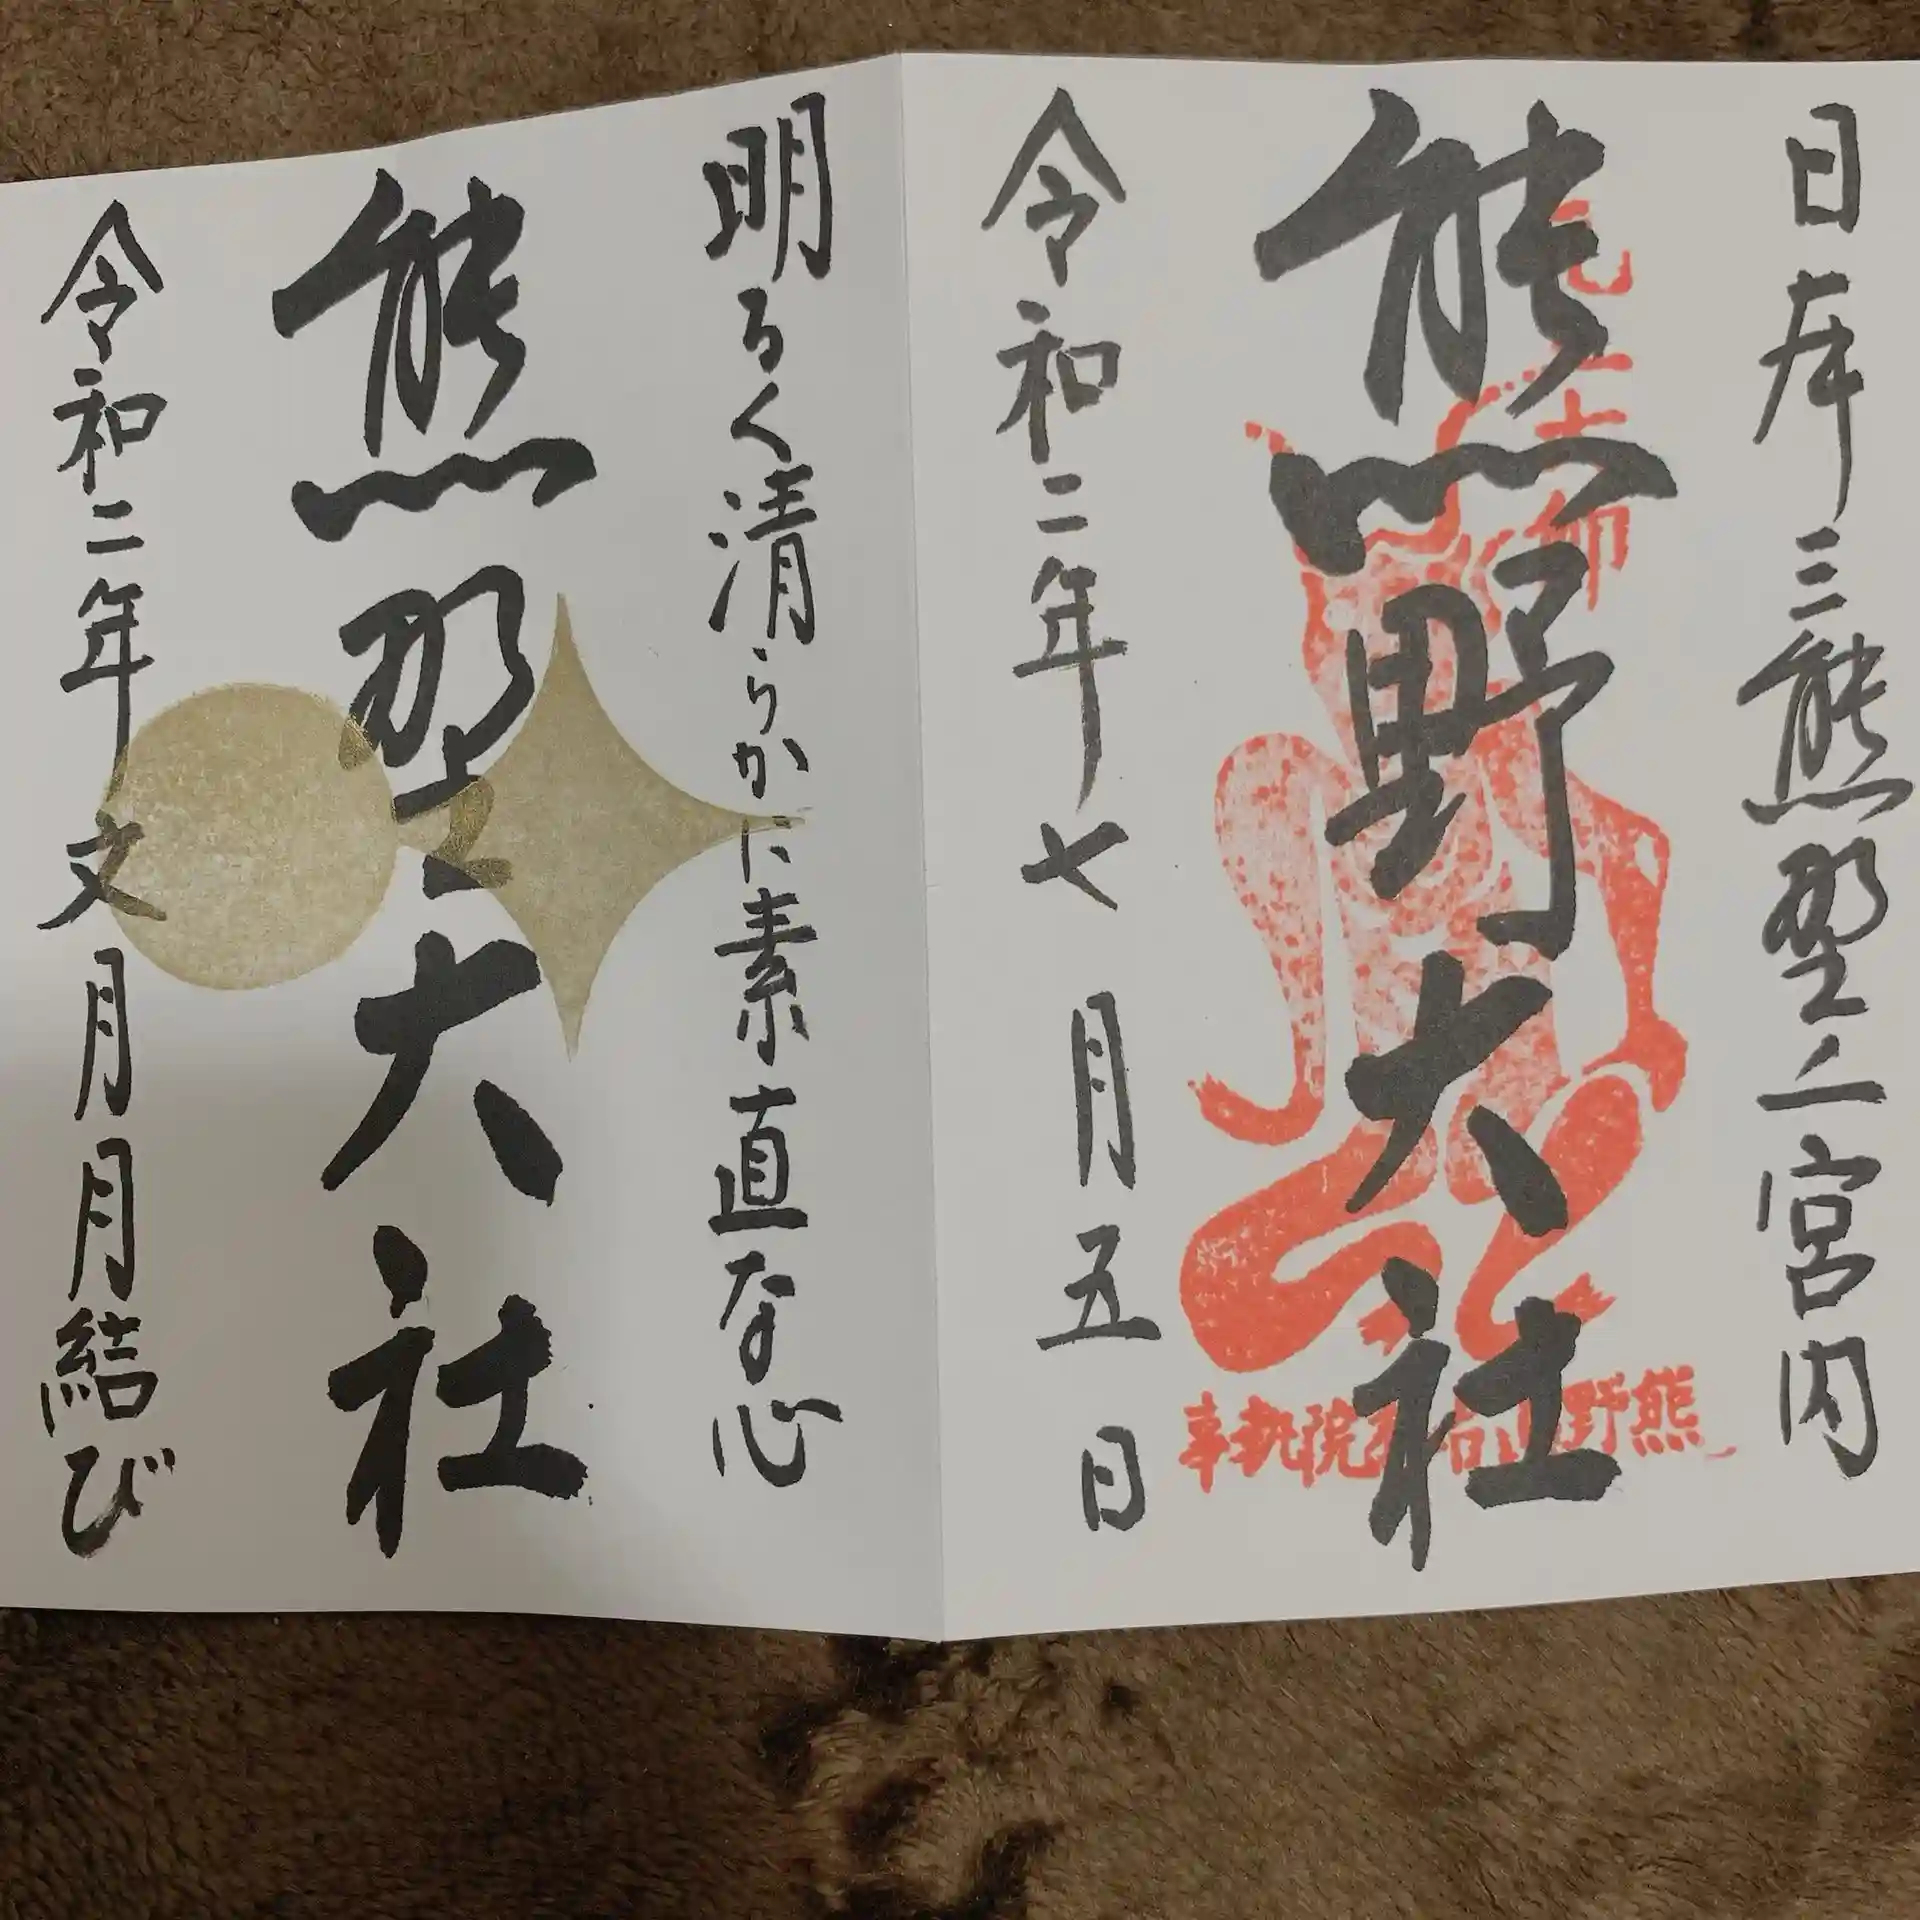 日本三熊埜之宮内
熊野大社
令和二年七月五日
明るく清らかに素直な心
熊埜大社
令和二年文月月結び